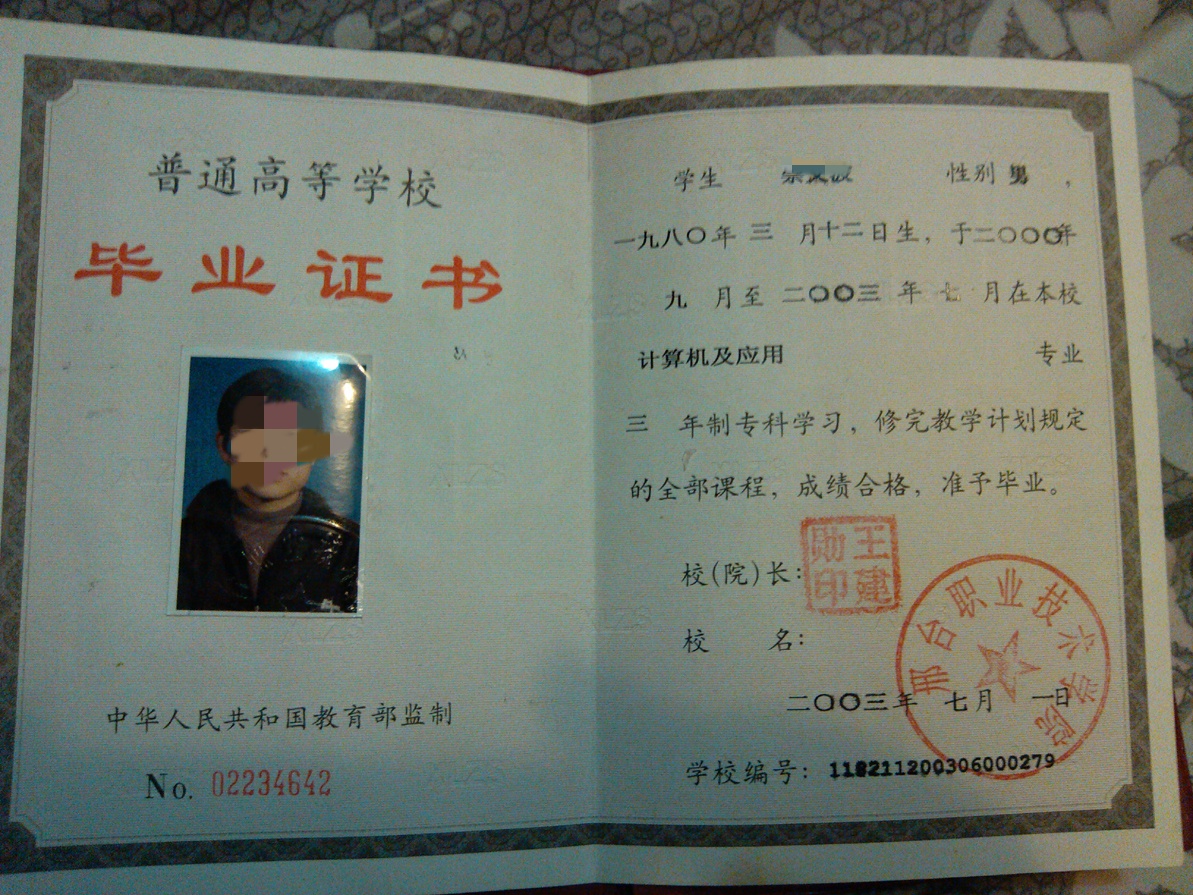 普通高等学校
毕业证书
中华人民共和国教育部监制
No. 02234642
学生 性别 男 ,
一九八〇年 三 月十二日生, 于二〇〇〇年
九 月至 二〇〇三 年 七 月在本校
计算机及应用 专业
三 年制专科学习, 修完教学计划规定
的全部课程, 成绩合格, 准予毕业。
校(院)长:
王建勋印
校 名:
邢台职业技术学院
二〇〇三年 七月 一日
学校编号: 118211200306000279